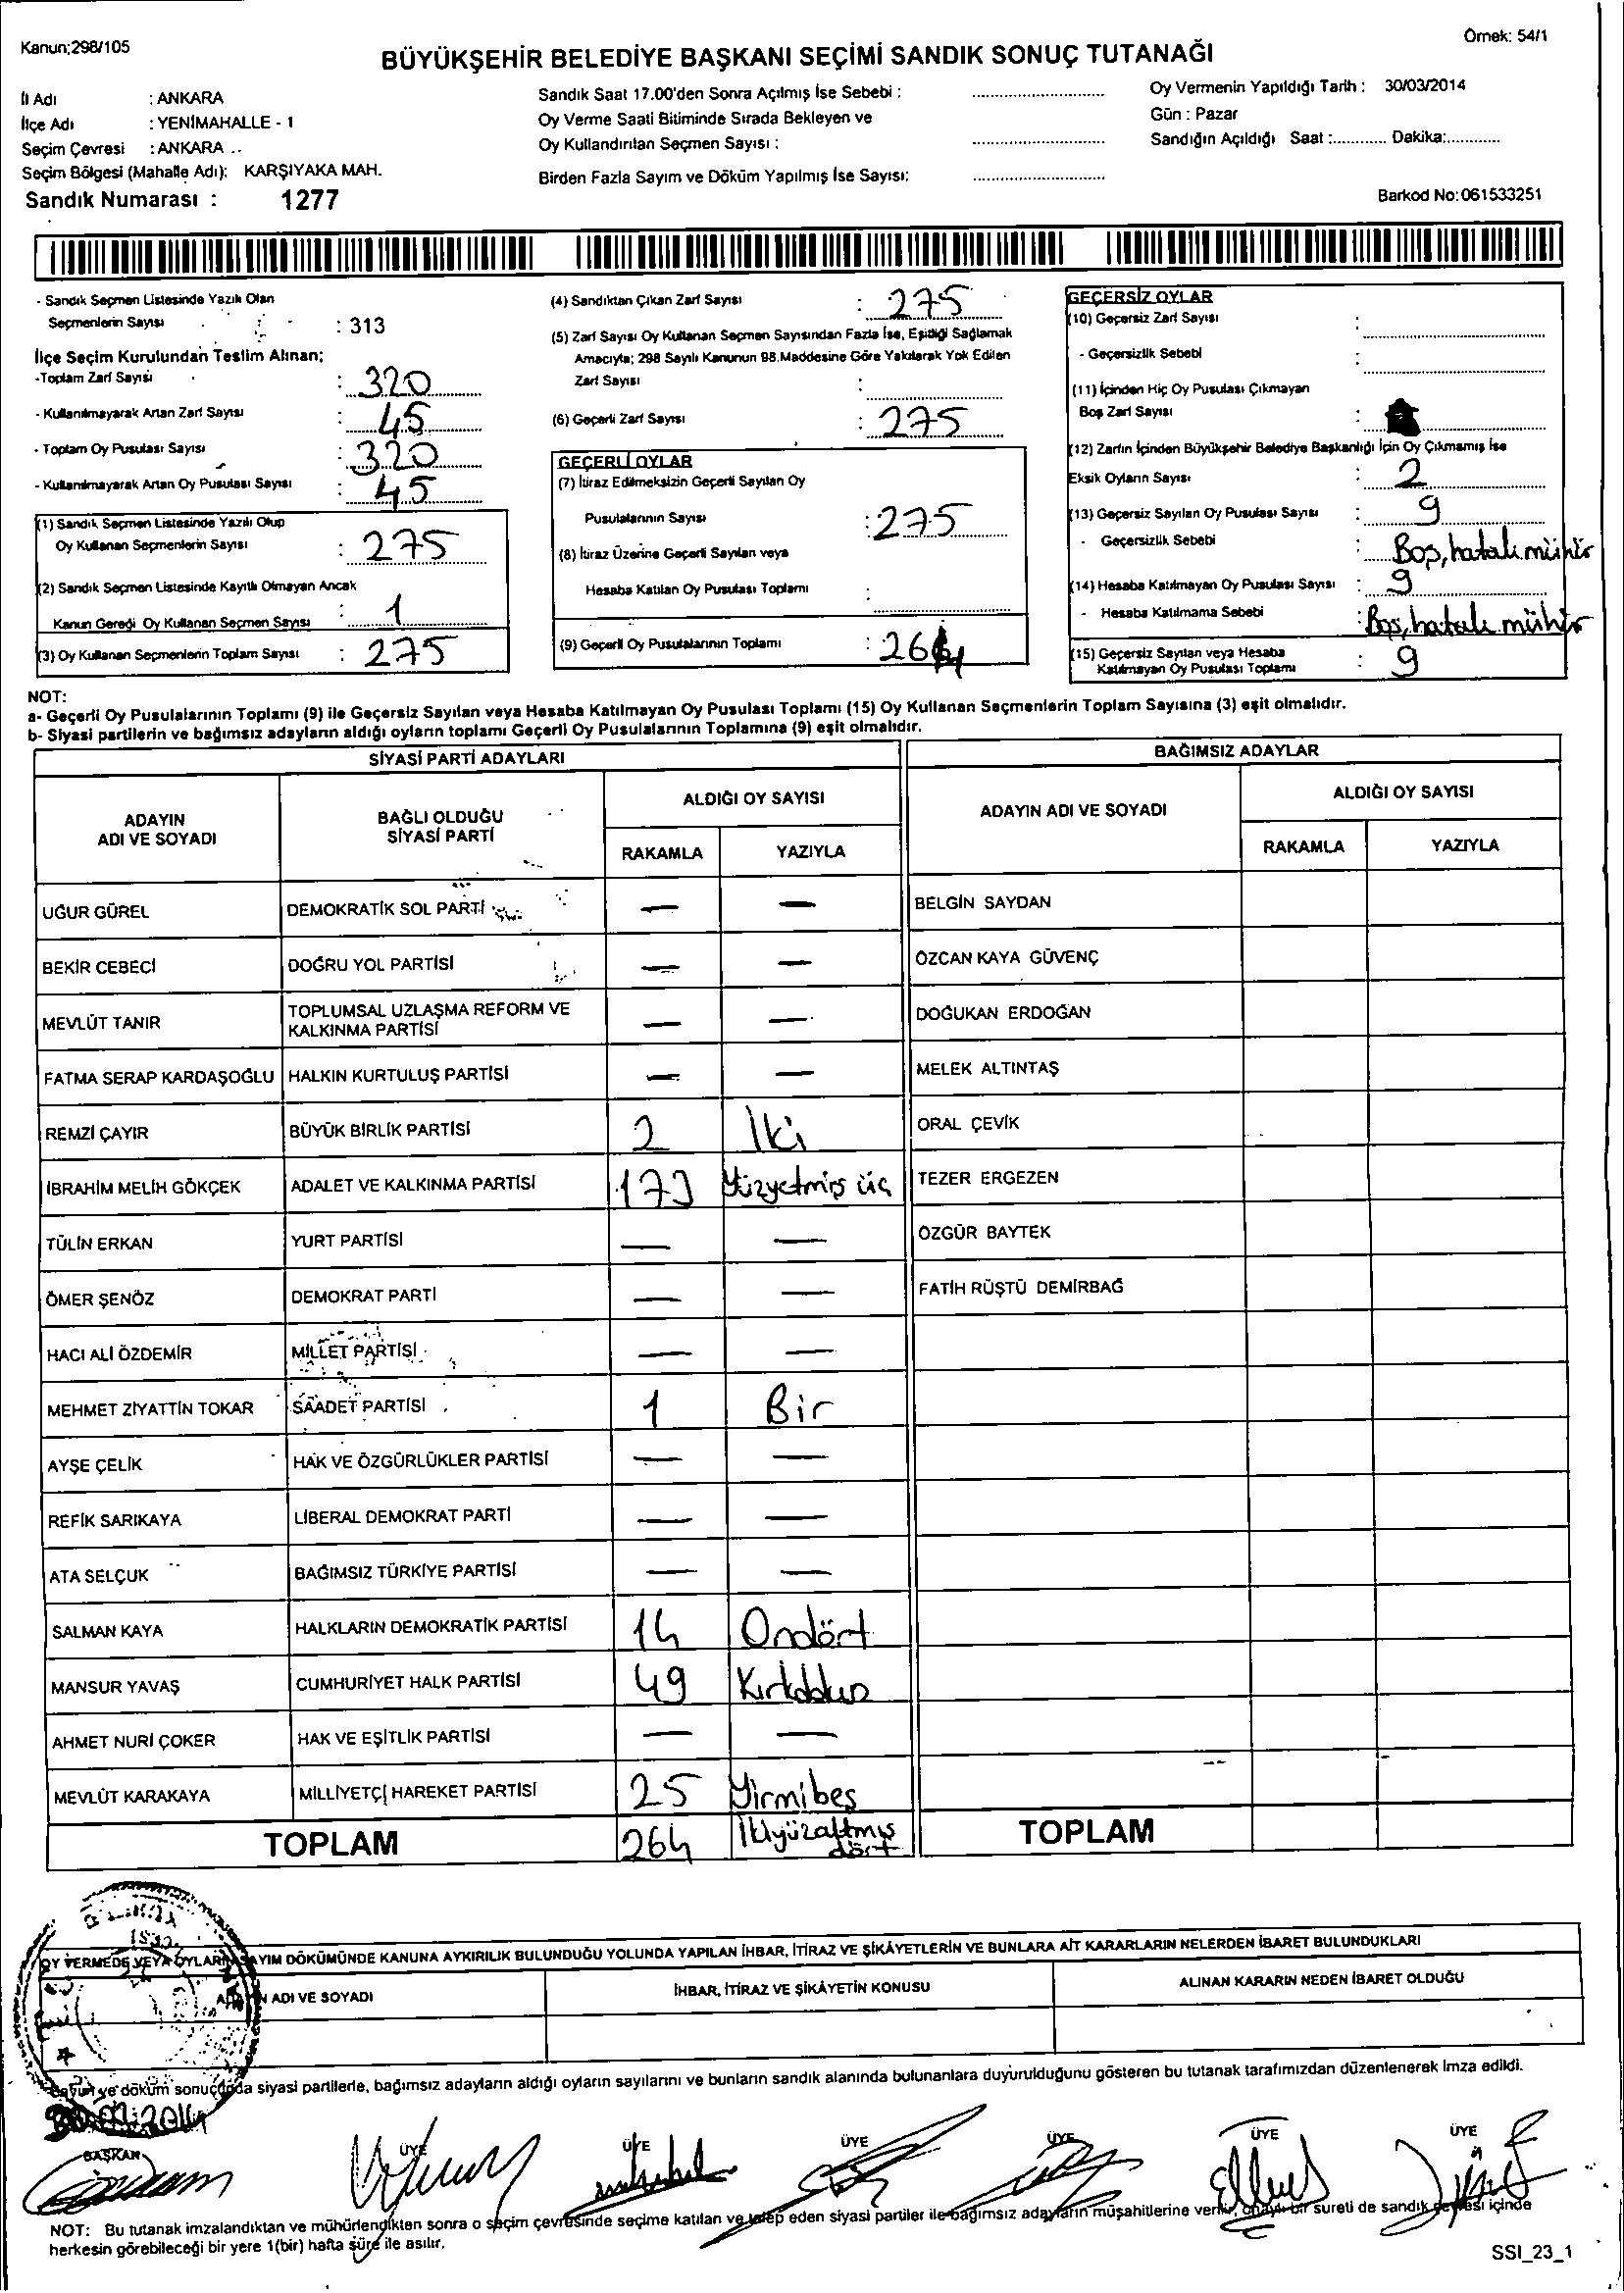 Kanun;298/105
Örnek: 54/1
BÜYÜKŞEHİR BELEDİYE BAŞKANI SEÇİMİ SANDIK SONUÇ TUTANAĞI
İl Adı : ANKARA
İlçe Adı : YENİMAHALLE - 1
Seçim Çevresi : ANKARA
Seçim Bölgesi (Mahalle Adı): KARŞIYAKA MAH.
Sandık Numarası : 1277
Sandık Saat 17.00'den Sonra Açılmış İse Sebebi :
Oy Verme Saati Bitiminde Sırada Bekleyen ve
Oy Kullandırılan Seçmen Sayısı :
Birden Fazla Sayım ve Döküm Yapılmış İse Sayısı:
Oy Vermenin Yapıldığı Tarih : 30/03/2014
Gün : Pazar
Sandığın Açıldığı Saat :............ Dakika:............
Barkod No:061533251
- Sandık Seçmen Listesinde Yazılı Olan
Seçmenlerin Sayısı : 313
İlçe Seçim Kurulundan Teslim Alınan;
-Toplam Zarf Sayısı : 320
- Kullanılmayarak Artan Zarf Sayısı : 45
- Toplam Oy Pusulası Sayısı : 320
- Kullanılmayarak Artan Oy Pusulası Sayısı : 45
(1) Sandık Seçmen Listesinde Yazılı Olup
Oy Kullanan Seçmenlerin Sayısı : 275
(2) Sandık Seçmen Listesinde Kayıtlı Olmayan Ancak
Kanun Gereği Oy Kullanan Seçmen Sayısı : 1
(3) Oy Kullanan Seçmenlerin Toplam Sayısı : 275
(4) Sandıktan Çıkan Zarf Sayısı : 275
(5) Zarf Sayısı Oy Kullanan Seçmen Sayısından Fazla İse, Eşitliği Sağlamak
Amacıyla; 298 Sayılı Kanunun 98.Maddesine Göre Yakılarak Yok Edilen
Zarf Sayısı :
(6) Geçerli Zarf Sayısı : 275
GEÇERLİ OYLAR
(7) İtiraz Edilmeksizin Geçerli Sayılan Oy
Pusulalarının Sayısı : 275
(8) İtiraz Üzerine Geçerli Sayılan veya
Hesaba Katılan Oy Pusulası Toplamı :
(9) Geçerli Oy Pusulalarının Toplamı : 264
GEÇERSİZ OYLAR
(10) Geçersiz Zarf Sayısı :
- Geçersizlik Sebebi :
(11) İçinden Hiç Oy Pusulası Çıkmayan
Boş Zarf Sayısı :
(12) Zarfın İçinden Büyükşehir Belediye Başkanlığı İçin Oy Çıkmamış İse
Eksik Oyların Sayısı : 2
(13) Geçersiz Sayılan Oy Pusulası Sayısı : 9
- Geçersizlik Sebebi : Boş, hatalı mühür
(14) Hesaba Katılmayan Oy Pusulası Sayısı : 9
- Hesaba Katılmama Sebebi : Boş, hatalı mühür
(15) Geçersiz Sayılan veya Hesaba
Katılmayan Oy Pusulası Toplamı : 9
NOT:
a- Geçerli Oy Pusulalarının Toplamı (9) ile Geçersiz Sayılan veya Hesaba Katılmayan Oy Pusulası Toplamı (15) Oy Kullanan Seçmenlerin Toplam Sayısına (3) eşit olmalıdır.
b- Siyasi partilerin ve bağımsız adayların aldığı oyların toplamı Geçerli Oy Pusulalarının Toplamına (9) eşit olmalıdır.
SİYASİ PARTİ ADAYLARI
BAĞIMSIZ ADAYLAR
ADAYIN
ADI VE SOYADI
BAĞLI OLDUĞU
SİYASİ PARTİ
ALDIĞI OY SAYISI
RAKAMLA YAZIYLA
ADAYIN ADI VE SOYADI
ALDIĞI OY SAYISI
RAKAMLA YAZIYLA
UĞUR GÜREL DEMOKRATİK SOL PARTİ — — BELGİN SAYDAN
BEKİR CEBECİ DOĞRU YOL PARTİSİ — — ÖZCAN KAYA GÜVENÇ
MEVLÜT TANIR TOPLUMSAL UZLAŞMA REFORM VE
KALKINMA PARTİSİ — — DOĞUKAN ERDOĞAN
FATMA SERAP KARDAŞOĞLU HALKIN KURTULUŞ PARTİSİ — — MELEK ALTINTAŞ
REMZİ ÇAYIR BÜYÜK BİRLİK PARTİSİ 2 İki ORAL ÇEVİK
İBRAHİM MELİH GÖKÇEK ADALET VE KALKINMA PARTİSİ 173 Yüzyetmiş üç TEZER ERGEZEN
TÜLİN ERKAN YURT PARTİSİ — — ÖZGÜR BAYTEK
ÖMER ŞENÖZ DEMOKRAT PARTİ — — FATİH RÜŞTÜ DEMİRBAĞ
HACI ALİ ÖZDEMİR MİLLET PARTİSİ — —
MEHMET ZİYATTİN TOKAR SAADET PARTİSİ 1 Bir
AYŞE ÇELİK HAK VE ÖZGÜRLÜKLER PARTİSİ — —
REFİK SARIKAYA LİBERAL DEMOKRAT PARTİ — —
ATA SELÇUK BAĞIMSIZ TÜRKİYE PARTİSİ — —
SALMAN KAYA HALKLARIN DEMOKRATİK PARTİSİ 14 Ondört
MANSUR YAVAŞ CUMHURİYET HALK PARTİSİ 49 Kırkdokuz
AHMET NURİ ÇOKER HAK VE EŞİTLİK PARTİSİ — —
MEVLÜT KARAKAYA MİLLİYETÇİ HAREKET PARTİSİ 25 Yirmibeş
TOPLAM 264 İkiyüzaltmış
dört
TOPLAM
OY VERMEDE VEYA OYLARIN SAYIM DÖKÜMÜNDE KANUNA AYKIRILIK BULUNDUĞU YOLUNDA YAPILAN İHBAR, İTİRAZ VE ŞİKÂYETLERİN VE BUNLARA AİT KARARLARIN NELERDEN İBARET BULUNDUKLARI
ADAYIN ADI VE SOYADI İHBAR, İTİRAZ VE ŞİKÂYETİN KONUSU ALINAN KARARIN NEDEN İBARET OLDUĞU
Sayım ve döküm sonucunda siyasi partilerle, bağımsız adayların aldığı oyların sayılarını ve bunların sandık alanında bulunanlara duyurulduğunu gösteren bu tutanak tarafımızdan düzenlenerek imza edildi.
30.03.2014
BAŞKAN ÜYE ÜYE ÜYE ÜYE ÜYE ÜYE
NOT: Bu tutanak imzalandıktan ve mühürlendikten sonra o seçim çevresinde seçime katılan ve talep eden siyasi partiler ile bağımsız adayların müşahitlerine verilir, onaylı bir sureti de sandık çevresi içinde
herkesin görebileceği bir yere 1(bir) hafta süre ile asılır.
SSI_23_1